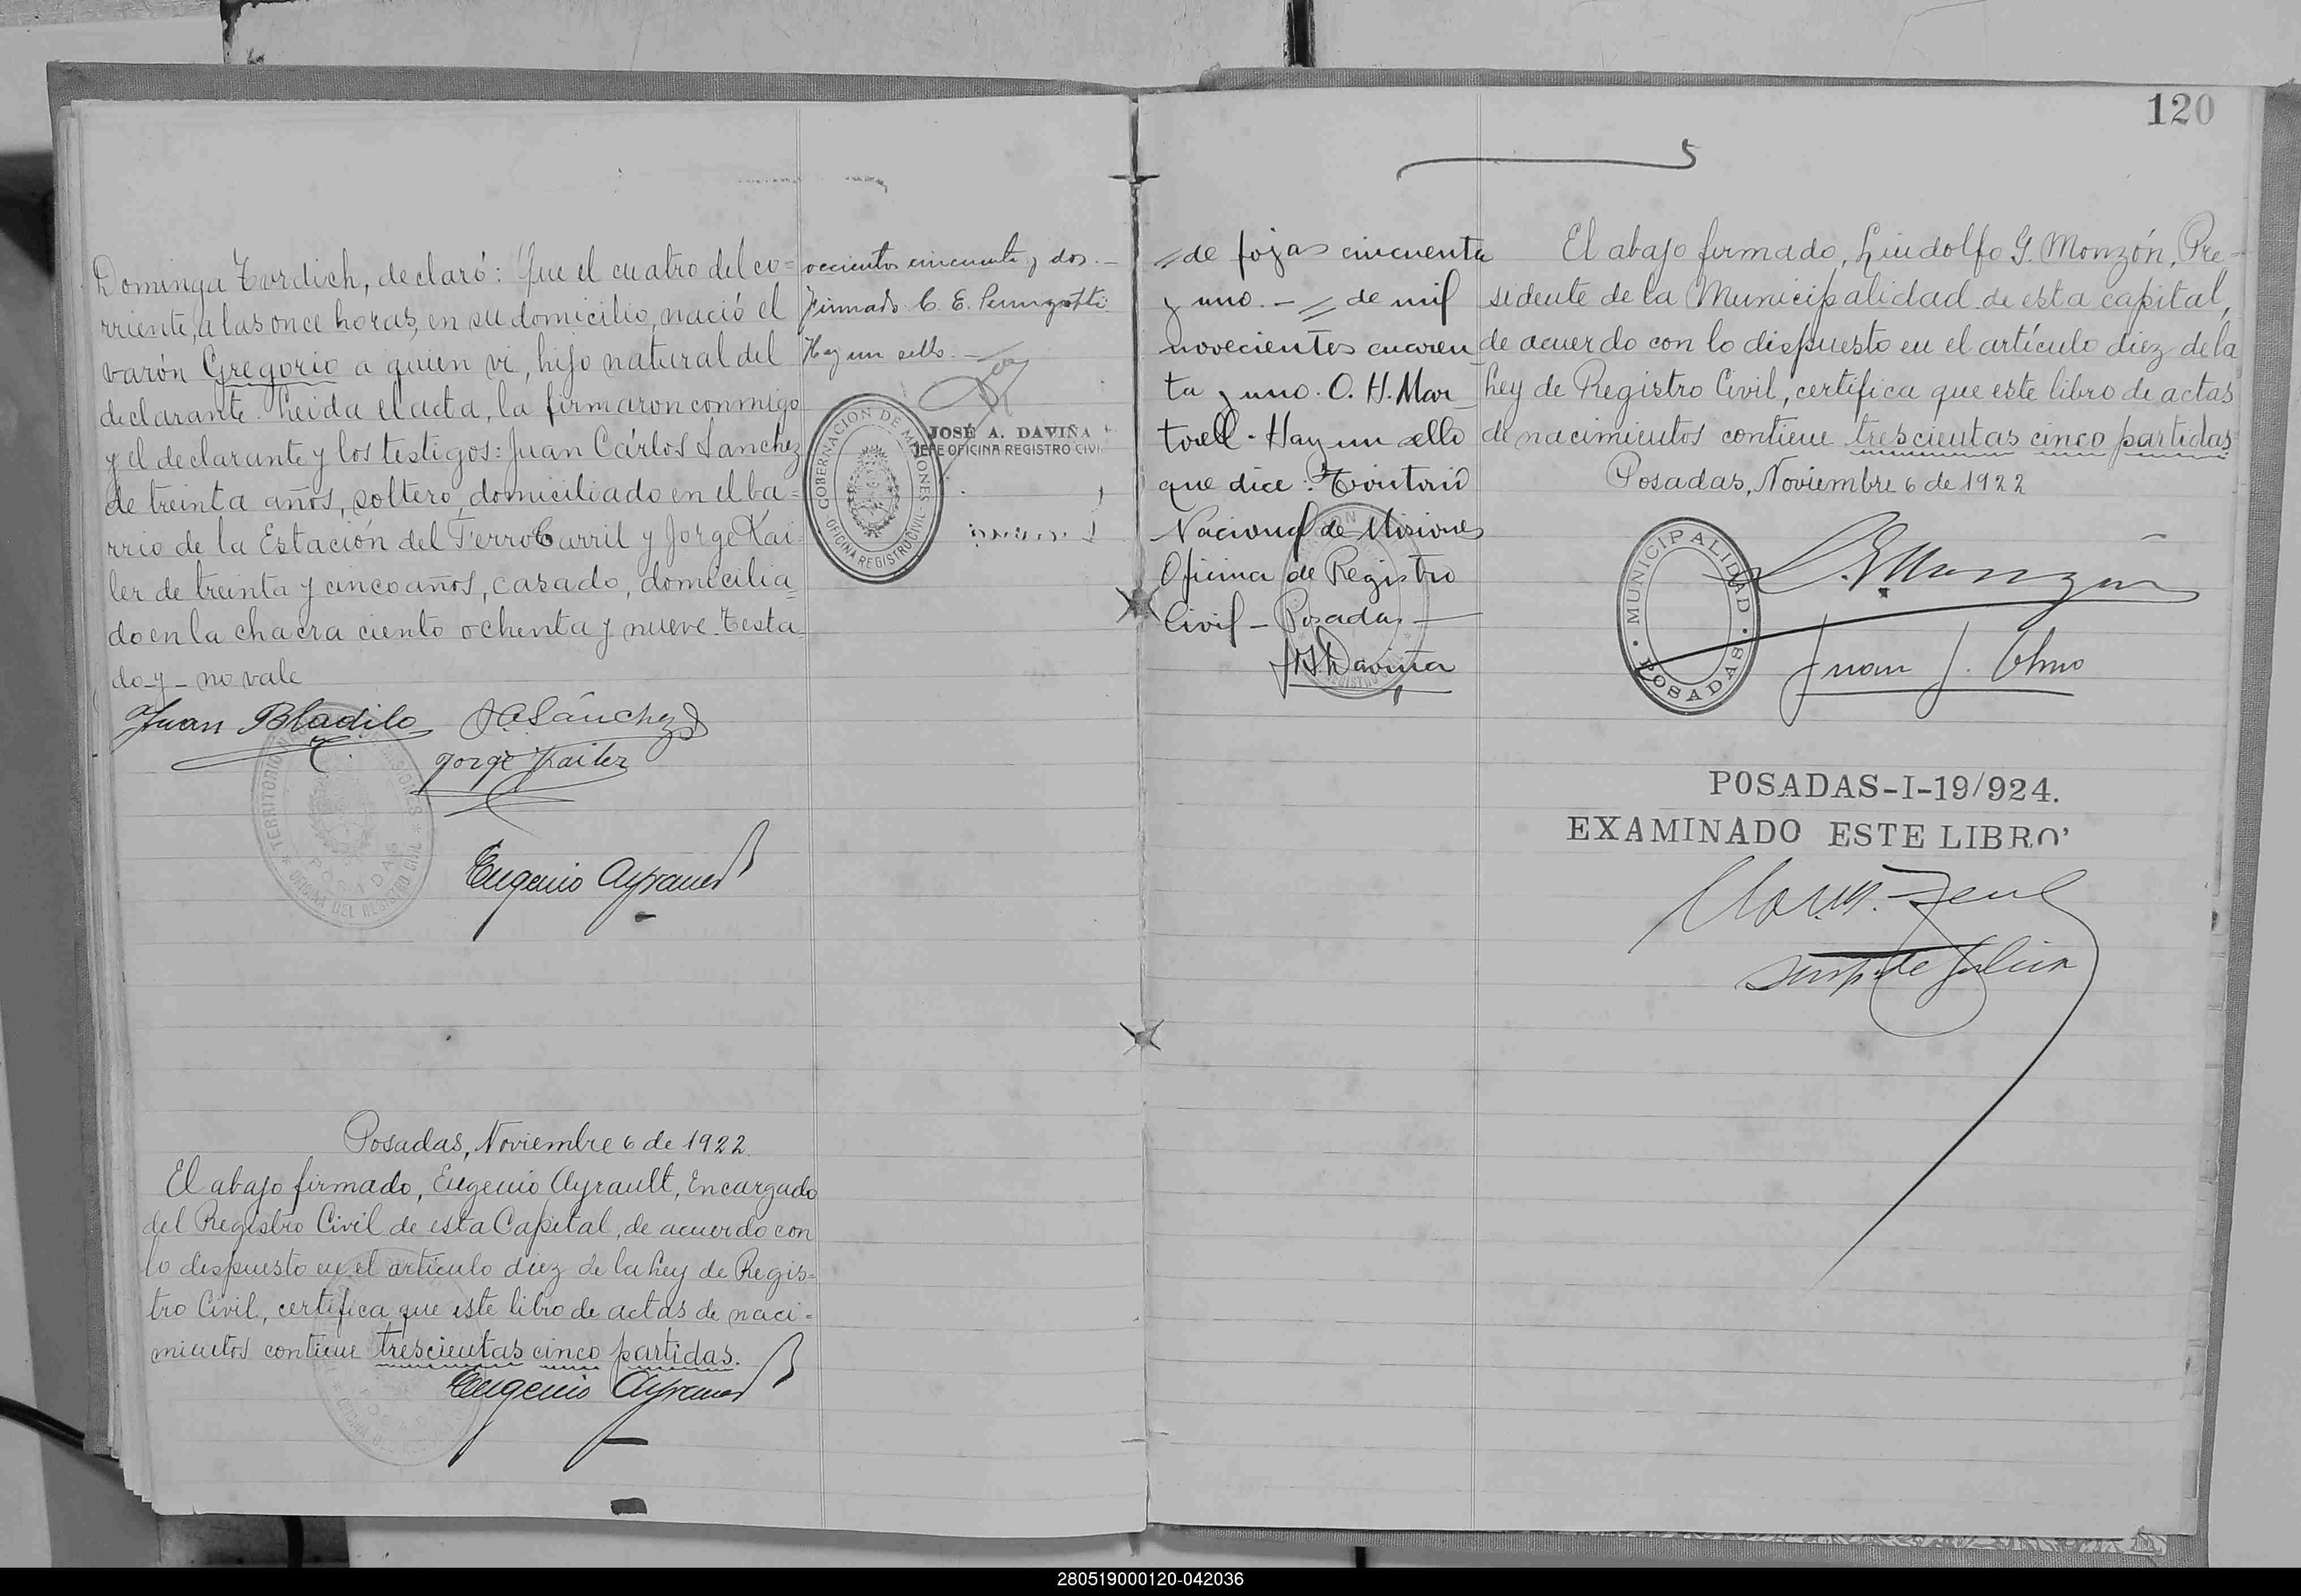 Dominga Tordich, declaró: Que el cuatro del co=
rriente, a las once horas, en su domicilio, nació el
varón Gregorio a quien vi, hijo natural del
declarante. Leida el acta, la firmaron conmigo
y el declarante y los testigos: Juan Cárlos Sanchez
de treinta años, soltero, domiciliado en el ba=
rrio de la Estación del FerroCarril y Jorge Kai=
ler de treinta y cinco años, casado, domicilia=
do en la chacra ciento ochenta y nueve. Testa=
do-y-no vale
Juan Bladilo
J.C. Sánchez
Jorge Kailer
TERRITORIO MISIONES
POSADAS
OFICINA DEL REGISTRO CIVIL
Eugenio Ayrault
Posadas, Noviembre 6 de 1922.
El abajo firmado, Eugenio Ayrault, Encargado
del Registro Civil de esta Capital, de acuerdo con
lo dispuesto en el artículo diez de la Ley de Regis=
tro Civil, certifica que este libro de actas de naci=
mientos contiene trescientas cinco partidas.
Eugenio Ayrault
vecientos cincuenta y dos.—
Firmado C. E.
Hay un sello.—
GOBERNACION DE MISIONES
OFICINA REGISTRO CIVIL
JOSÉ A. DAVIÑA
JEFE OFICINA REGISTRO CIVIL
120
de fojas cincuenta
y uno.— de mil
novecientos cuaren
ta y uno. O. H. Mar
torell - Hay un sello
que dice: Territorio
Nacional de Misiones
Oficina de Registro
Civil - Posadas —
Daviña
El abajo firmado, Lindolfo G. Monzón, Pre=
sidente de la Municipalidad de esta capital,
de acuerdo con lo dispuesto en el artículo diez de la
Ley de Registro Civil, certifica que este libro de actas
de nacimientos contiene trescientas cinco partidas
Posadas, Noviembre 6 de 1922
MUNICIPALIDAD
POSADAS
L. G. Monzón
Juan J. Olmo
POSADAS-I-19/924.
EXAMINADO ESTE LIBRO
280519000120-042036